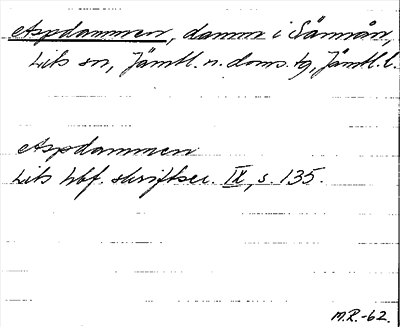 Aspdammen, damm i Sännån,
Lits sn, Jämtl. n. doms. tg, Jämtl. l.
Aspdammen
Lits hbf. skriftser. IX, s. 135.
M.R.-62.